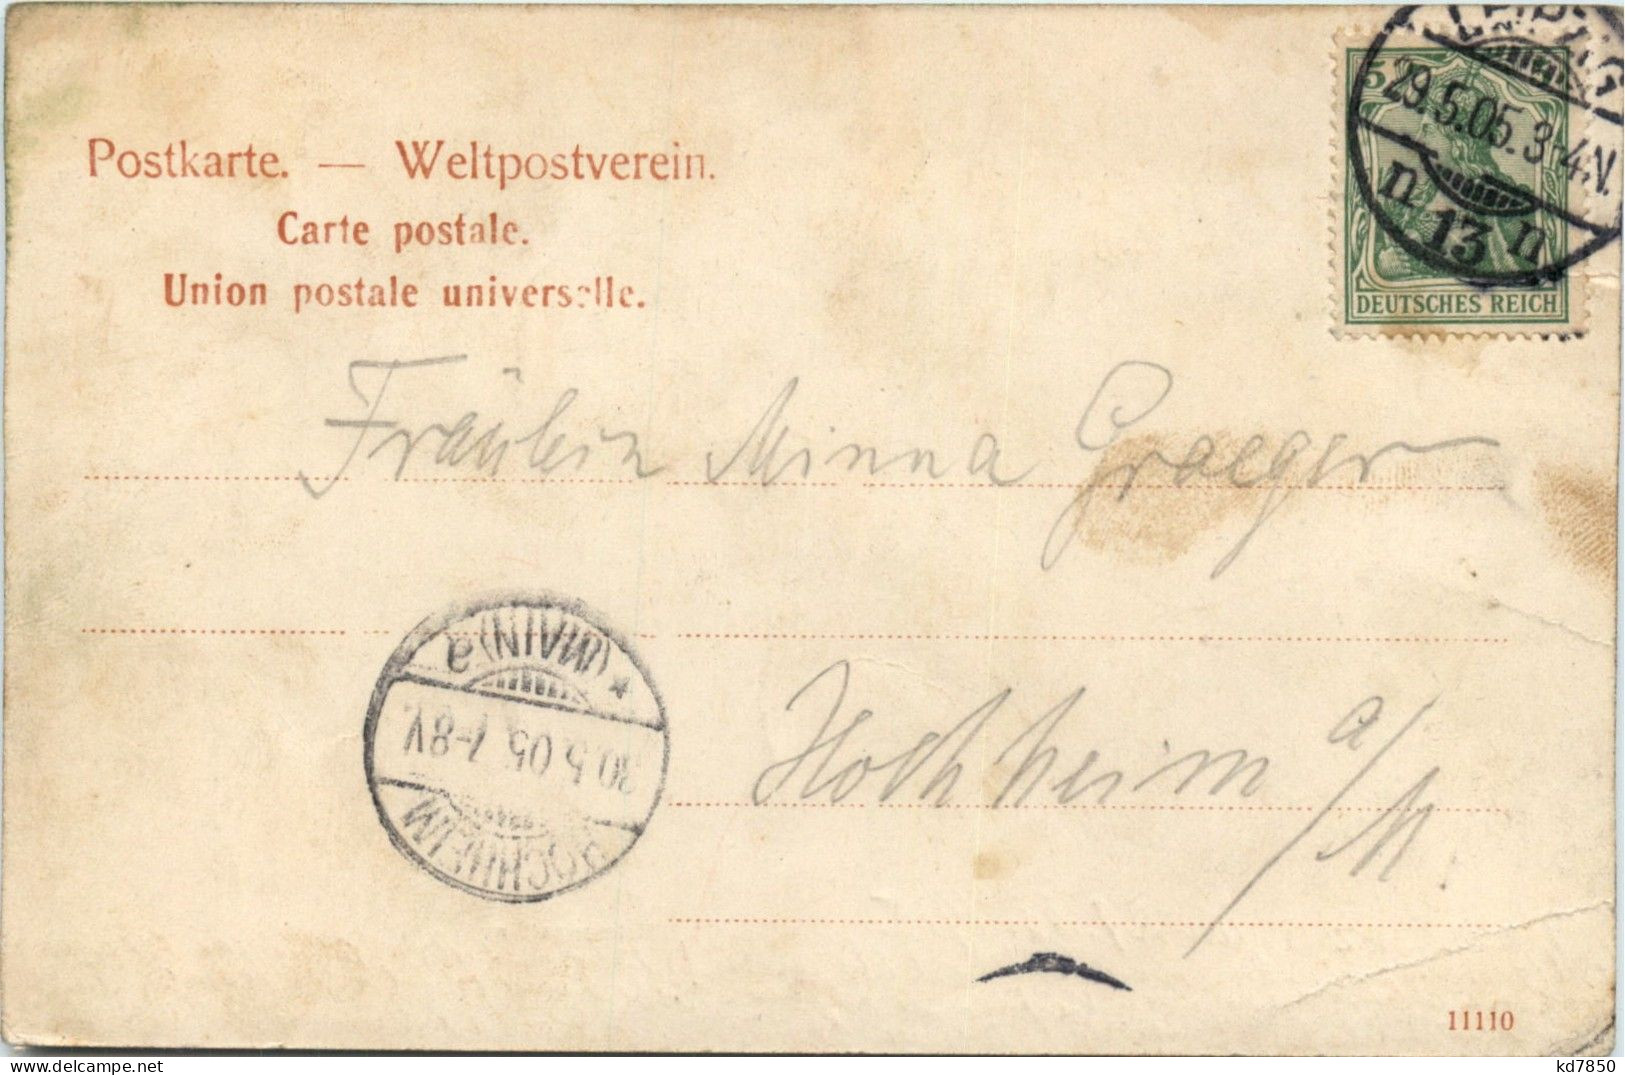 LEIPZIG
5
29.5.05. 3-4 N.
n 13 n
DEUTSCHES REICH
Postkarte. — Weltpostverein.
Carte postale.
Union postale universelle.
Fräulein Minna Graeger
Hochheim a/M.
HOCHHEIM
30.5.05. 7-8V.
(MAIN) a
11110
delcampe.net
kd7850